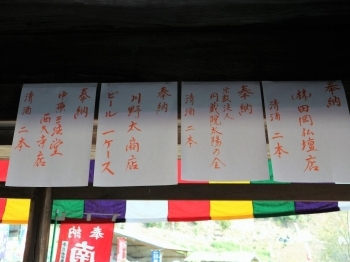 奉納
(株)田岡仏壇店
清酒 二本
奉納
宗教法人
円戒院太陽の会
清酒 二本
奉納
川野太商店
ビール 一ケース
奉納
西大寺店
清酒 二本
奉納
南